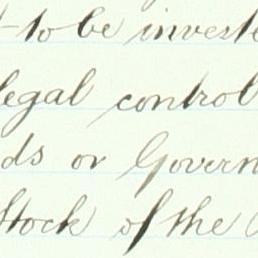 to be investe
legal control
ds or Govern
Stock of the